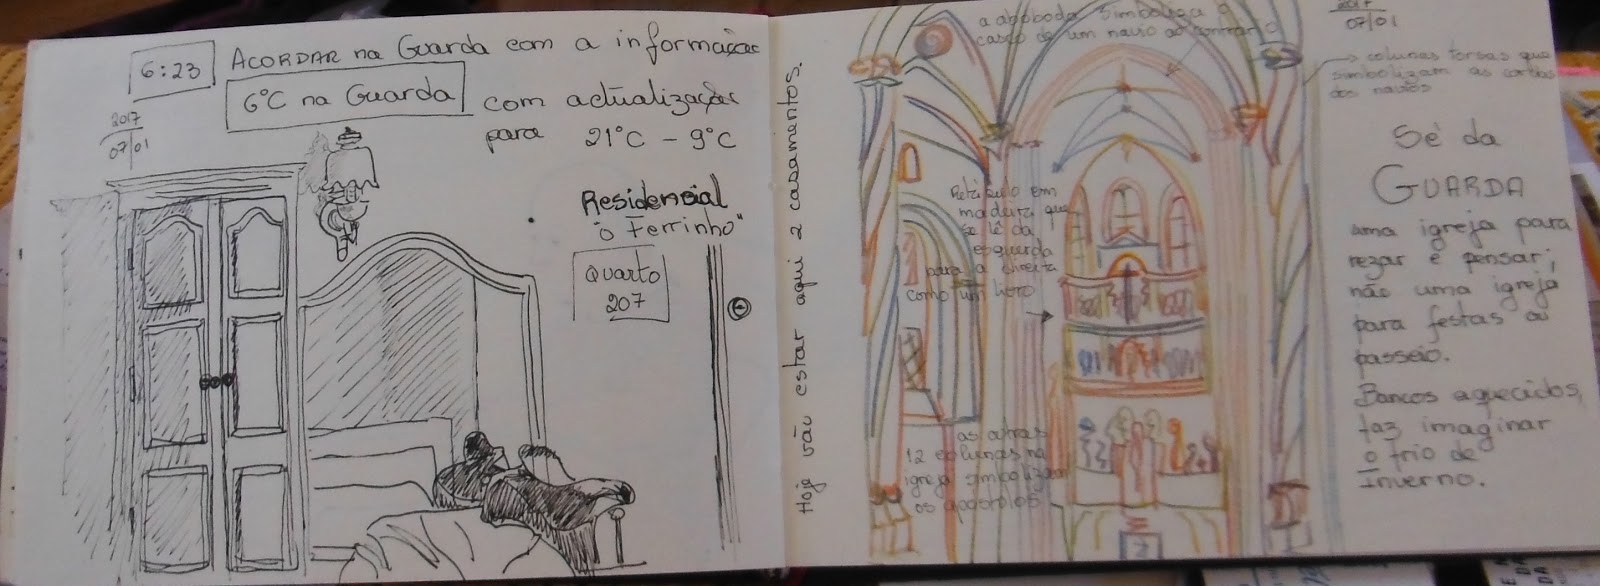 6:23
ACORDAR na Guarda com a informação
6°C na Guarda
com actualização
para 21°C - 9°C
2017
07/01
Residencial
"o Ferrinho"
Quarto
207
Hoje vão estar aqui 2 casamentos.
a abóboda simboliza o
casco de um navio ao contrário
2017
07/01
colunas torsas que
simbolizam as cordas
dos navios
Retábulo em
madeira que
se lê da
esquerda
para a direita
como um livro
as outras
12 colunas na
igreja simbolizam
os apóstolos
Sé da
GUARDA
uma igreja para
rezar e pensar;
não uma igreja
para festas ou
passeio.
Bancos aquecidos,
faz imaginar
o frio de
Inverno.